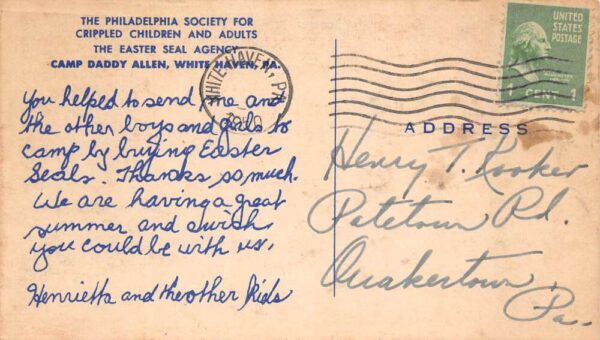 THE PHILADELPHIA SOCIETY FOR
CRIPPLED CHILDREN AND ADULTS
THE EASTER SEAL AGENCY
CAMP DADDY ALLEN, WHITE HAVEN, PA.
You helped to send me and
the other boys and girls to
camp by buying Easter
Seals. Thanks so much.
We are having a great
summer and wish
you could be with us.
Henrietta and the other kids
WHITE HAVEN, PA.
UNITED
STATES
POSTAGE
WASHINGTON
1 CENT 1
ADDRESS
Henry T. Kooker
Patetown Rd.
Quakertown,
Pa.